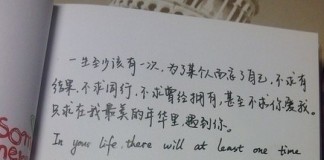 一生至少该有一次，为了某个人而忘了自己，不求有
结果，不求同行，不求曾经拥有，甚至不求你爱我。
只求在我最美的年华里，遇到你。
In your life, there will at least one time